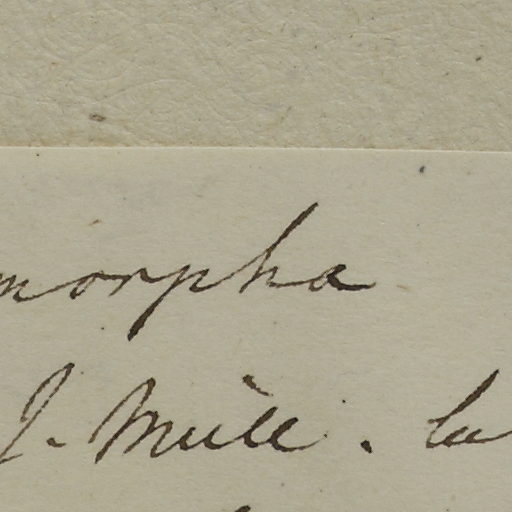 morpha
J. Müll. la